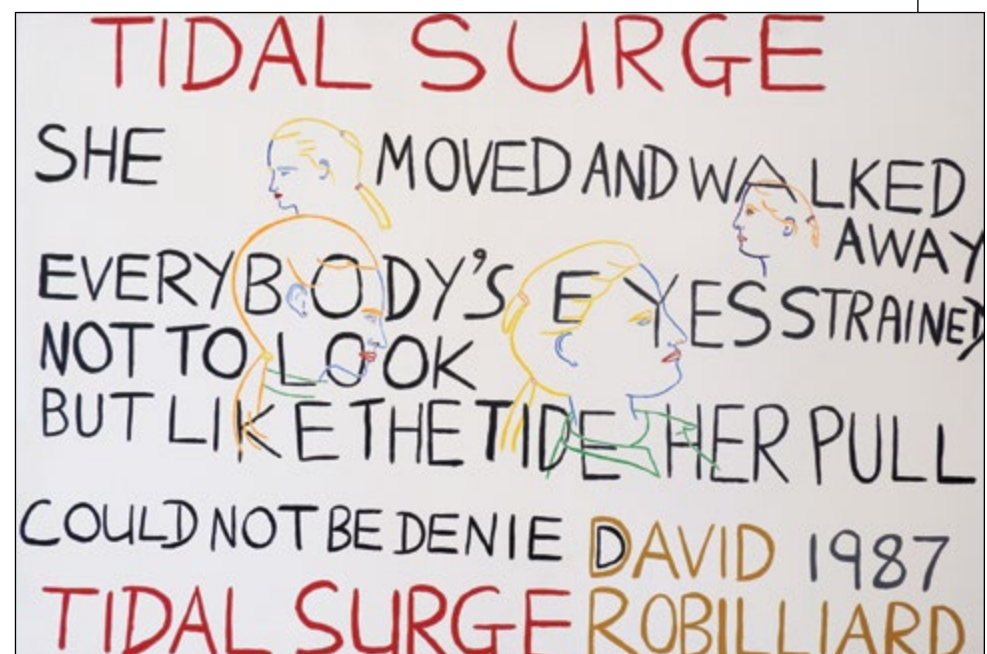 TIDAL SURGE
SHE MOVED AND WALKED
AWAY
EVERYBODY'S EYES STRAINED
NOT TO LOOK
BUT LIKE THE TIDE HER PULL
COULD NOT BE DENIE DAVID 1987
TIDAL SURGE ROBILLIARD